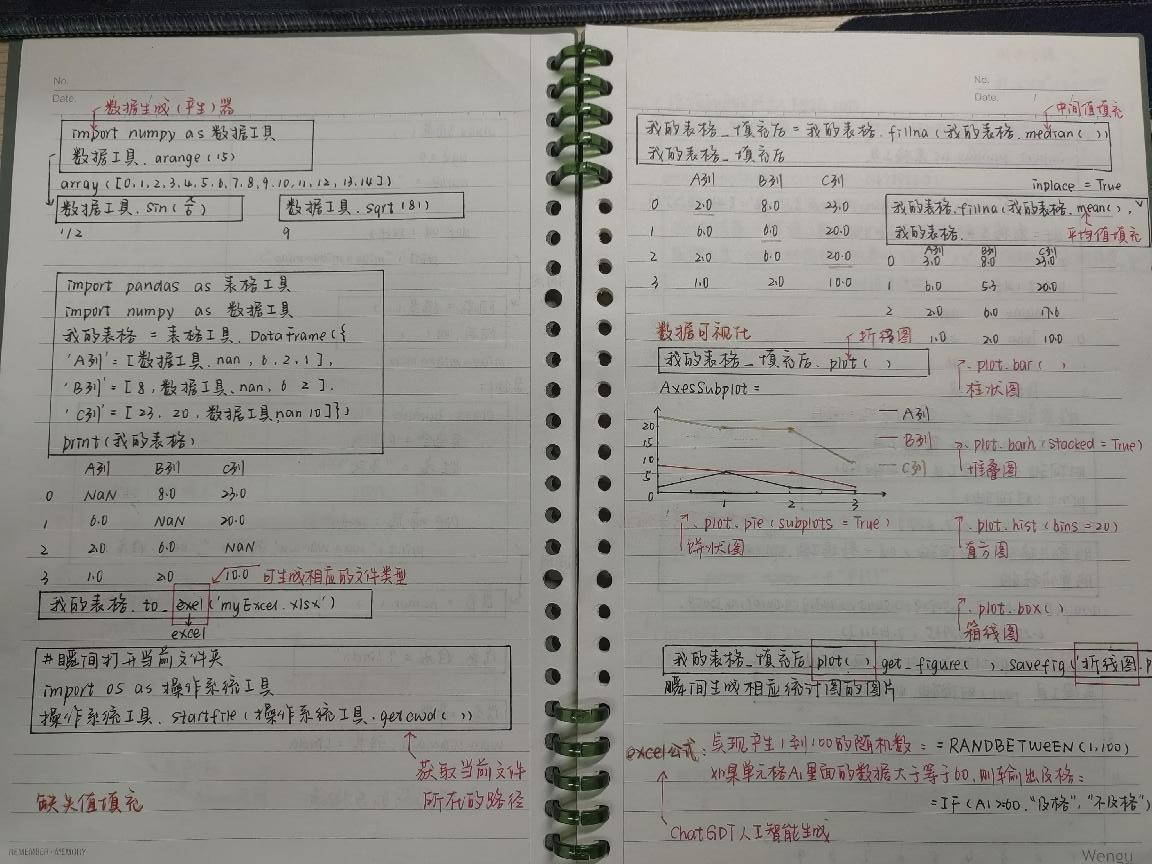 No.
Date.
数据生成(产生)器
import numpy as 数据工具
数据工具.arange(15)
array([0,1,2,3,4,5,6,7,8,9,10,11,12,13,14])
数据工具.sin(
数据工具.sqrt(81)
1/2
9
import pandas as 表格工具
import numpy as 数据工具
我的表格 = 表格工具.DataFrame({
'A列'=[数据工具.nan,6,2,1],
'B列'=[8,数据工具.nan,6 2].
'C列'=[23,20,数据工具.nan 10]})
print(我的表格)
A列 B列 C列
0 NaN 8.0 23.0
1 6.0 NaN 20.0
2 2.0 6.0 NaN
3 1.0 2.0 10.0
可生成相应的文件类型
我的表格.to_exel('myExcel.xlsx')
excel
#瞬间打开当前文件夹
import os as 操作系统工具
操作系统工具.startfile(操作系统工具.getcwd())
获取当前文件
所在的路径
缺失值填充
REMEMBER·MEMORY
No.
Date.
中间值填充
我的表格_填充后=我的表格.fillna(我的表格.median())
我的表格_填充后
A列 B列 C列
0 2.0 8.0 23.0
1 6.0 6.0 20.0
2 2.0 6.0 20.0
3 1.0 2.0 10.0
inplace = True
我的表格.fillna(我的表格.mean(),
我的表格.
平均值填充
A列 B列 C列
0 3.0 8.0 23.0
1 6.0 5.3 20.0
2 2.0 6.0 17.6
1.0 2.0 10.0
数据可视化
折线图
我的表格_填充后.plot()
AxesSubplot =
.plot.bar()
柱状图
20
15
10
5
0
1 2 3
A列
B列
C列
.plot.barh(stacked=True)
堆叠图
.plot.pie(subplots=True)
饼状图
.plot.hist(bins=20)
直方图
.plot.box()
箱线图
我的表格_填充后.plot().get_figure().savefig('折线图.p
瞬间生成相应统计图的图片
excel公式:实现产生1到100的随机数:=RANDBETWEEN(1,100)
如果单元格A1里面的数据大于等于60,则输出及格:
=IF(A1>=60,"及格","不及格")
ChatGDT人工智能生成
Wengu